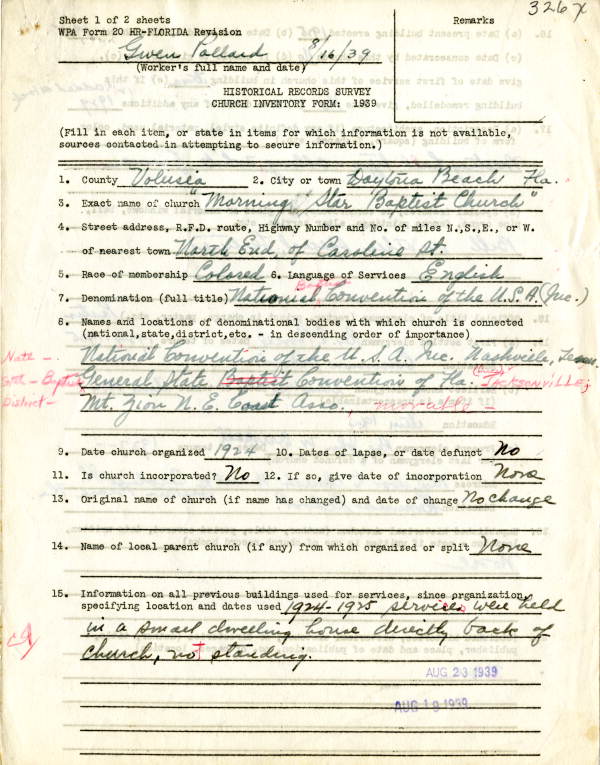 326 X
Sheet 1 of 2 sheets
Remarks
WPA Form 20 HR-FLORIDA Revision
Gwen Pollard 8/16/39
(Worker's full name and date)
HISTORICAL RECORDS SURVEY
CHURCH INVENTORY FORM: 1939
(Fill in each item, or state in items for which information is not available,
sources contacted in attempting to secure information.)
1. County Volusia 2. City or town Daytona Beach Fla.
3. Exact name of church "Morning Star Baptist Church"
4. Street address, R.F.D. route, Highway Number and No. of miles N.,S.,E., or W.
of nearest town North End, of Caroline St.
5. Race of membership Colored 6. Language of Services English
Baptist
7. Denomination (full title) National Convention of the U.S.A. (Inc.)
8. Names and locations of denominational bodies with which church is connected
(national,state,district,etc. - in descending order of importance)
Natl - National Convention of the U.S.A. Inc. Nashville, Tenn.
State - Baptist General State Baptist Convention of Fla. JACKSONVILLE;
District - Mt. Zion N. E. Coast Asso.
9. Date church organized 1924 10. Dates of lapse, or date defunct No
11. Is church incorporated? No 12. If so, give date of incorporation None
13. Original name of church (if name has changed) and date of change No change
14. Name of local parent church (if any) from which organized or split None
15. Information on all previous buildings used for services, since organization,
specifying location and dates used 1924-1925 services were held
in a small dwelling house directly back of
church, not standing.
AUG 23 1939
AUG 19 1939